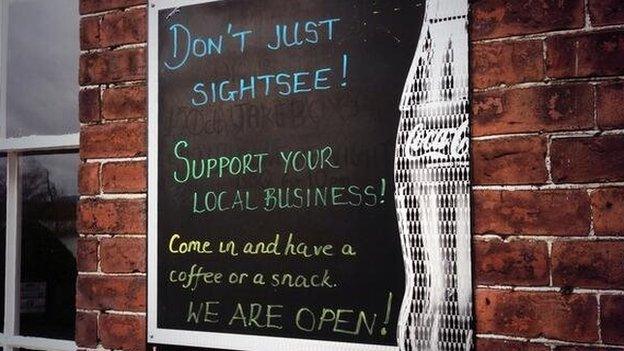 Don't just
sightsee!
Support your
local business!
Come in and have a
coffee or a snack.
We are open!
Coca-Cola